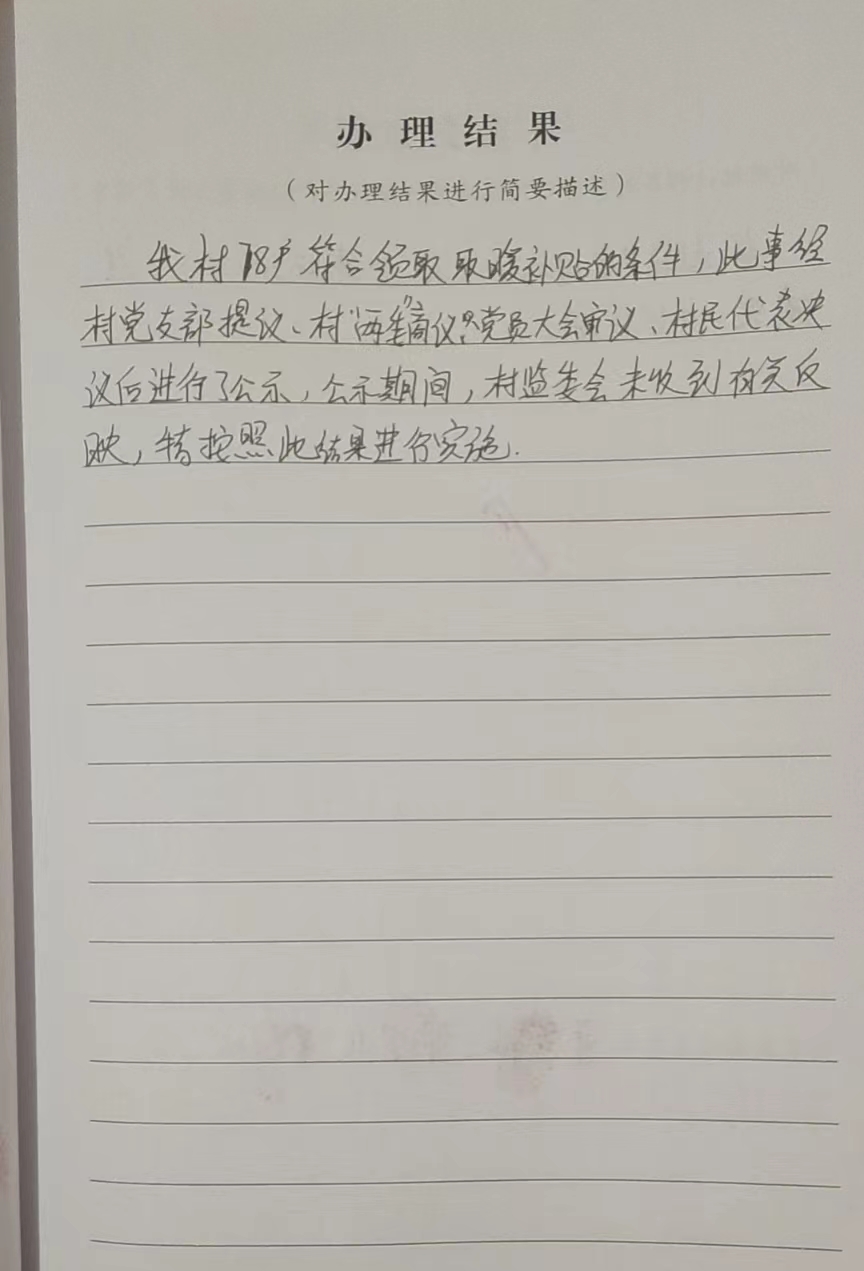 办理结果
（对办理结果进行简要描述）
我村78户符合领取取暖补贴的条件，此事经
村党支部提议、村“两委”商议、党员大会审议、村民代表决
议后进行了公示，公示期间，村监委会未收到有关反
映，特按照此结果进行实施.